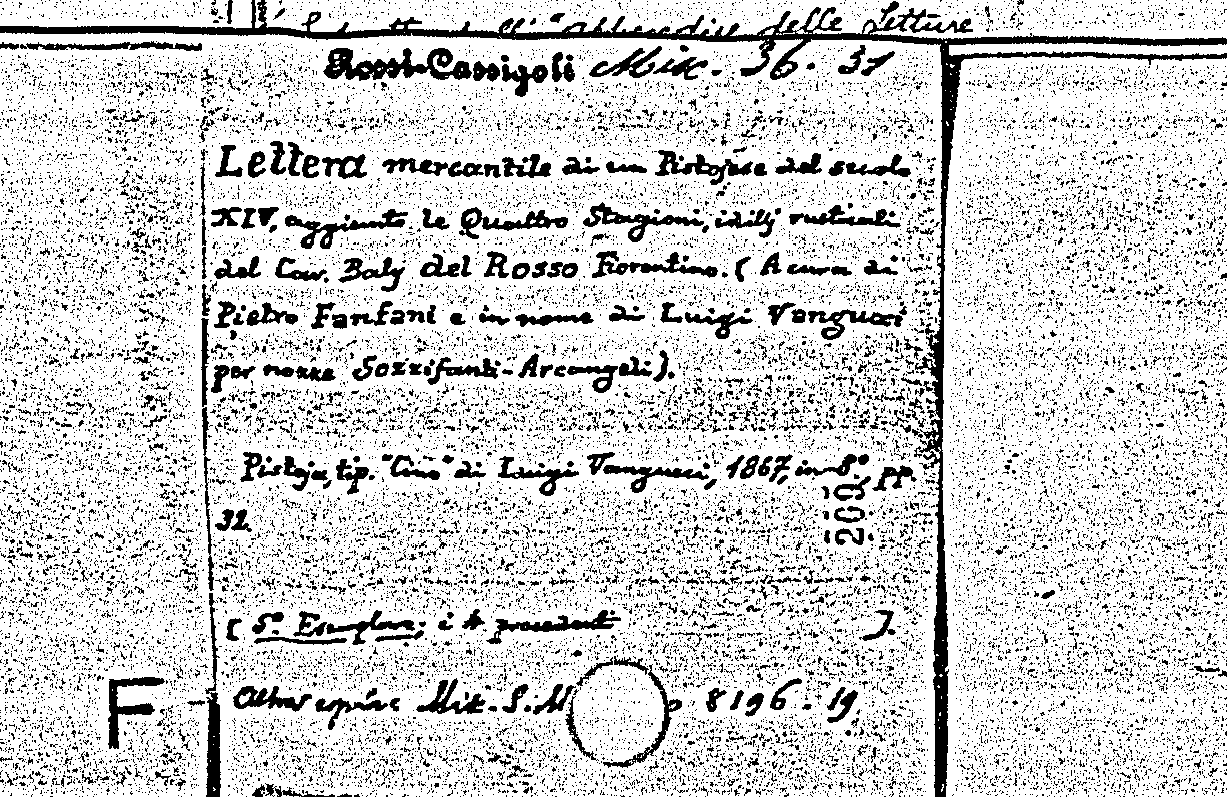 delle Letture
Rossi-Cassigoli Mix. 36. 31
Lettera mercantile di un Pistojese del secolo
XIV, aggiunte le Quattro Stagioni, idillj rusticali
del Cav. Balj del Rosso Fiorentino. (A cura di
Pietro Fanfani e in nome di Luigi Vangucci
per nozze Sozzifanti-Arcangeli).
Pistoja, tip. "Cino" di Luigi Vangucci, 1867, in-8º, pp.
32.
2003
[5º Esemplare; i 4 precedenti ].
F
Altro esplre Mix. 8196. 19